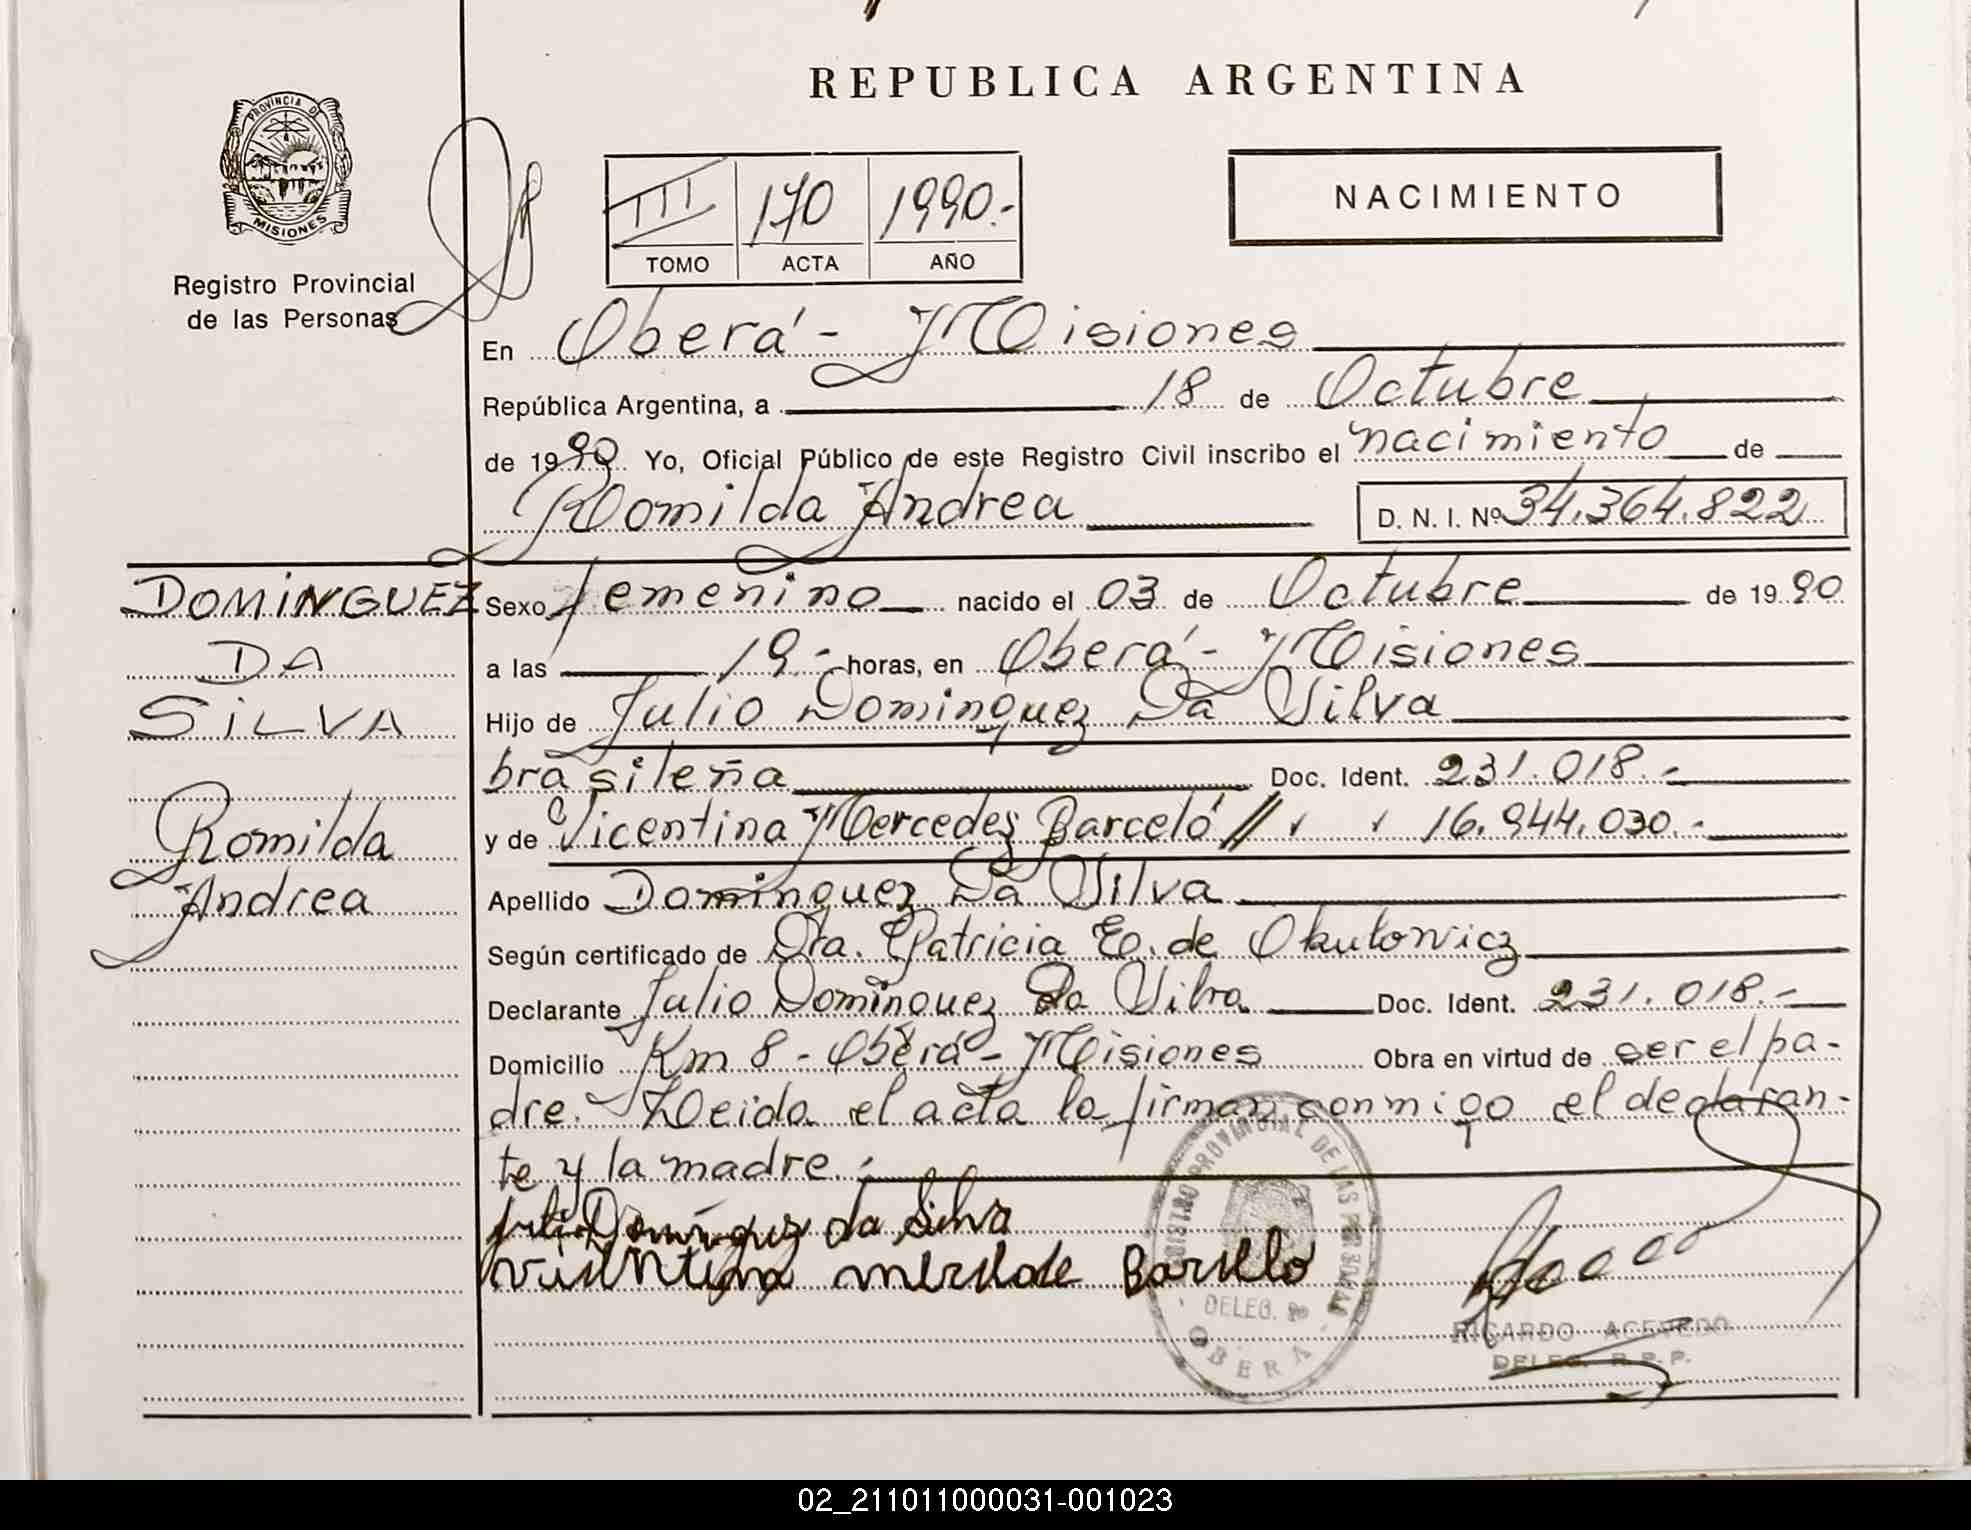 REPUBLICA ARGENTINA
PROVINCIA DE
MISIONES
Registro Provincial
de las Personas
III 170 1990.-
TOMO ACTA AÑO
NACIMIENTO
En Oberá - Misiones
República Argentina, a 18 de Octubre
de 1990 Yo, Oficial Público de este Registro Civil inscribo el nacimiento de
Romilda Andrea D. N. I. Nº 34.364.822
DOMINGUEZ
DA
SILVA
Romilda
Andrea
Sexo femenino nacido el 03 de Octubre de 1990
a las 19.- horas, en Oberá - Misiones
Hijo de Julio Dominguez Da Silva
brasileña Doc. Ident. 231.018.-
y de Vicentina Mercedes Barceló // 16.944.030.-
Apellido Dominguez Da Silva
Según certificado de Dra. Patricia E. de Okulowicz
Declarante Julio Dominguez Da Silva Doc. Ident. 231.018.-
Domicilio Km 8 - Oberá - Misiones Obra en virtud de ser el pa-
dre. Leída el acta la firman conmigo el declaran-
te y la madre.-
Julio Domínguez da Silva
Barcelo
REGISTRO PROVINCIAL DE LAS PERSONAS
DELEG.
OBERA
RICARDO ACEVEDO
DELEG. R.P.P.
02_211011000031-001023